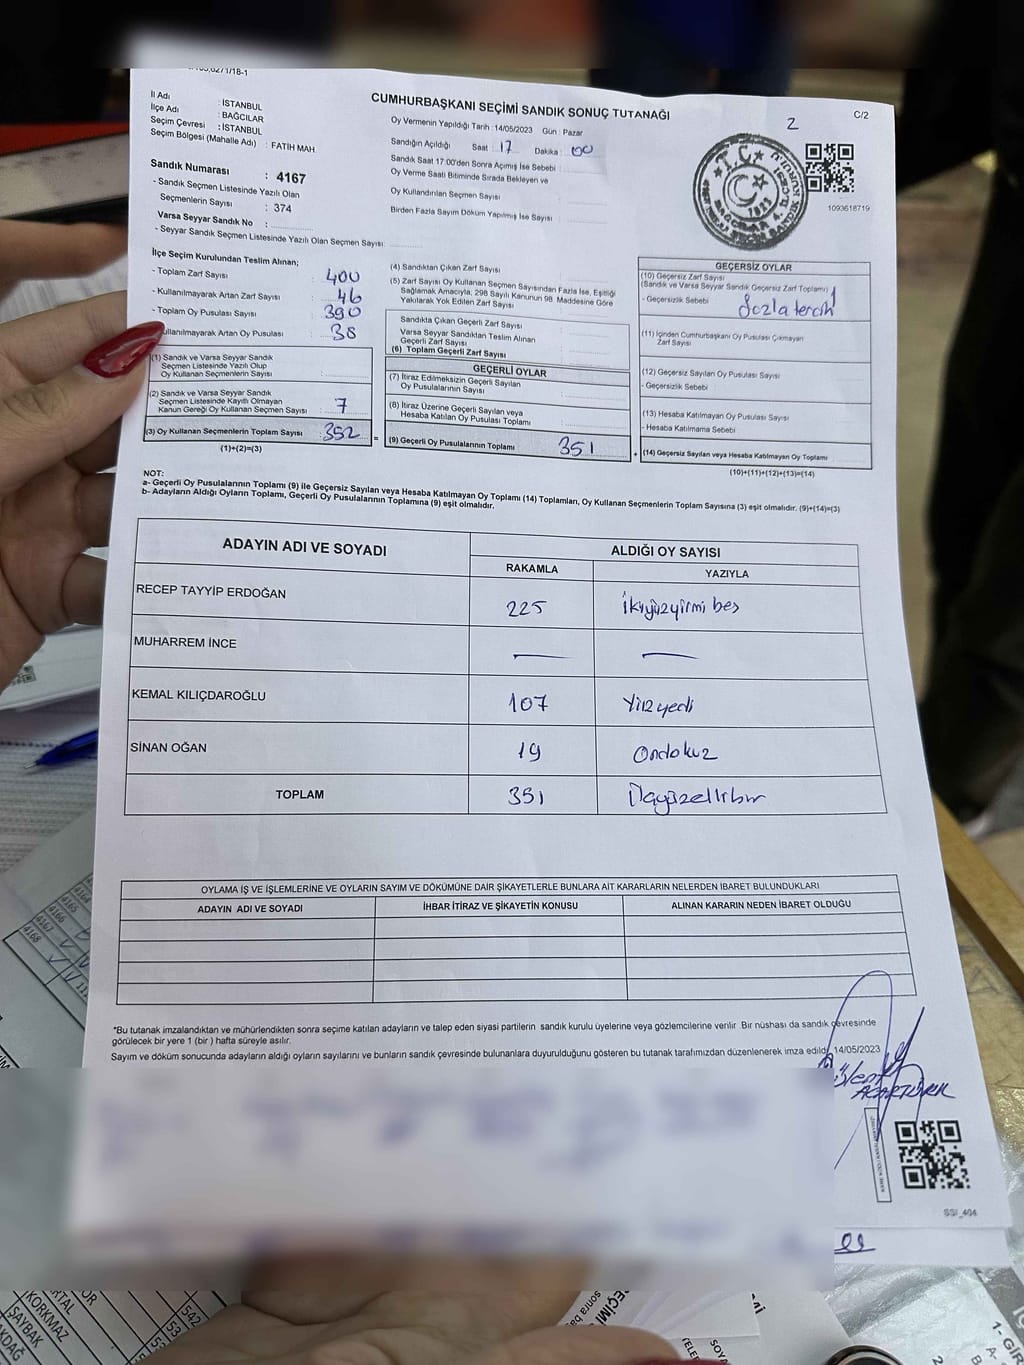 C/2
CUMHURBAŞKANI SEÇİMİ SANDIK SONUÇ TUTANAĞI
İl Adı : İSTANBUL
İlçe Adı : BAĞCILAR
Seçim Çevresi : İSTANBUL
Seçim Bölgesi (Mahalle Adı) : FATİH MAH.
Sandık Numarası : 4167
- Sandık Seçmen Listesinde Yazılı Olan
Seçmenlerin Sayısı : 374
Varsa Seyyar Sandık No :
- Seyyar Sandık Seçmen Listesinde Yazılı Olan Seçmen Sayısı:
Oy Vermenin Yapıldığı Tarih :14/05/2023 Gün : Pazar
Sandığın Açıldığı Saat : 17 Dakika : 00
Sandık Saat 17:00'den Sonra Açılmış İse Sebebi :
Oy Verme Saati Bitiminde Sırada Bekleyen ve
Oy Kullandırılan Seçmen Sayısı :
Birden Fazla Sayım Döküm Yapılmış İse Sayısı :
2
T.C.
1093618719
İlçe Seçim Kurulundan Teslim Alınan;
- Toplam Zarf Sayısı : 400
- Kullanılmayarak Artan Zarf Sayısı : 46
- Toplam Oy Pusulası Sayısı : 390
ullanılmayarak Artan Oy Pusulası : 38
(1) Sandık ve Varsa Seyyar Sandık
Seçmen Listesinde Yazılı Olup
Oy Kullanan Seçmenlerin Sayısı :
(2) Sandık ve Varsa Seyyar Sandık
Seçmen Listesinde Kayıtlı Olmayan
Kanun Gereği Oy Kullanan Seçmen Sayısı : 7
(3) Oy Kullanan Seçmenlerin Toplam Sayısı : 352
(1)+(2)=(3)
(4) Sandıktan Çıkan Zarf Sayısı :
(5) Zarf Sayısı Oy Kullanan Seçmen Sayısından Fazla İse, Eşitliği
Sağlamak Amacıyla, 298 Sayılı Kanunun 98. Maddesine Göre
Yakılarak Yok Edilen Zarf Sayısı :
Sandıkta Çıkan Geçerli Zarf Sayısı :
Varsa Seyyar Sandıktan Teslim Alınan
Geçerli Zarf Sayısı :
(6) Toplam Geçerli Zarf Sayısı :
GEÇERLİ OYLAR
(7) İtiraz Edilmeksizin Geçerli Sayılan
Oy Pusulalarının Sayısı :
(8) İtiraz Üzerine Geçerli Sayılan veya
Hesaba Katılan Oy Pusulası Toplamı :
= (9) Geçerli Oy Pusulalarının Toplamı : 351
GEÇERSİZ OYLAR
(10) Geçersiz Zarf Sayısı
(Sandık ve Varsa Seyyar Sandık Geçersiz Zarf Toplamı) : 1
- Geçersizlik Sebebi : fazla tercih
(11) İçinden Cumhurbaşkanı Oy Pusulası Çıkmayan
Zarf Sayısı :
(12) Geçersiz Sayılan Oy Pusulası Sayısı :
- Geçersizlik Sebebi :
(13) Hesaba Katılmayan Oy Pusulası Sayısı :
- Hesaba Katılmama Sebebi :
+ (14) Geçersiz Sayılan veya Hesaba Katılmayan Oy Toplamı :
(10)+(11)+(12)+(13)=(14)
NOT:
a- Geçerli Oy Pusulalarının Toplamı (9) ile Geçersiz Sayılan veya Hesaba Katılmayan Oy Toplamı (14) Toplamları, Oy Kullanan Seçmenlerin Toplam Sayısına (3) eşit olmalıdır. (9)+(14)=(3)
b- Adayların Aldığı Oyların Toplamı, Geçerli Oy Pusulalarının Toplamına (9) eşit olmalıdır.
ADAYIN ADI VE SOYADI ALDIĞI OY SAYISI
RAKAMLA YAZIYLA
RECEP TAYYİP ERDOĞAN 225 İkiyüzyirmi beş
MUHARREM İNCE — —
KEMAL KILIÇDAROĞLU 107 Yüzyedi
SİNAN OĞAN 19 Ondokuz
TOPLAM 351 Üçyüzellibir
OYLAMA İŞ VE İŞLEMLERİNE VE OYLARIN SAYIM VE DÖKÜMÜNE DAİR ŞİKAYETLERLE BUNLARA AİT KARARLARIN NELERDEN İBARET BULUNDUKLARI
ADAYIN ADI VE SOYADI İHBAR İTİRAZ VE ŞİKAYETİN KONUSU ALINAN KARARIN NEDEN İBARET OLDUĞU
*Bu tutanak imzalandıktan ve mühürlendikten sonra seçime katılan adayların ve talep eden siyasi partilerin sandık kurulu üyelerine veya gözlemcilerine verilir. Bir nüshası da sandık çevresinde
görülecek bir yere 1 (bir ) hafta süreyle asılır.
Sayım ve döküm sonucunda adayların aldığı oyların sayılarını ve bunların sandık çevresinde bulunanlara duyurulduğunu gösteren bu tutanak tarafımızdan düzenlenerek imza edildi. 14/05/2023
ACARTÜRK
SSI_404
4164
4165
4166
4167
4168
KORKMAZ
ŞAYBAK
542
53